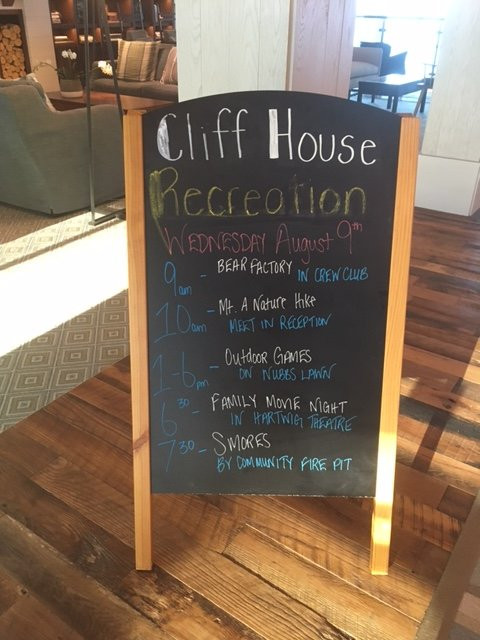 Cliff House
Recreation
Wednesday August 9th
9am - Bear Factory in Crew Club
10am - Mt. A Nature Hike
Meet in Reception
1-6pm - Outdoor Games
on Nubbs Lawn
6 30 - Family Movie Night
in Hartwig Theatre
7 30 - Smores
by Community Fire Pit